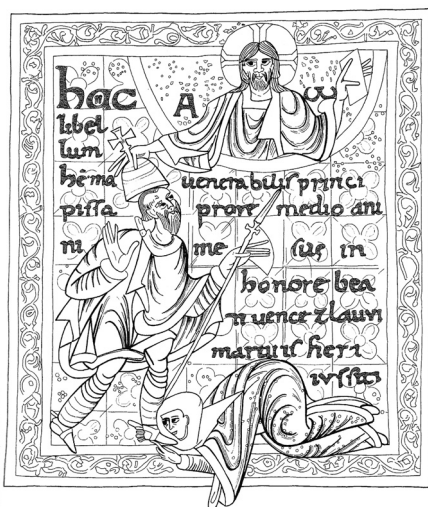 hac
A ω
libel
lum
hēma uenerabilis princi
pissa prore medio ani
ni me sue in
honore bea
ti uence zlauui
martiris fieri
iussit